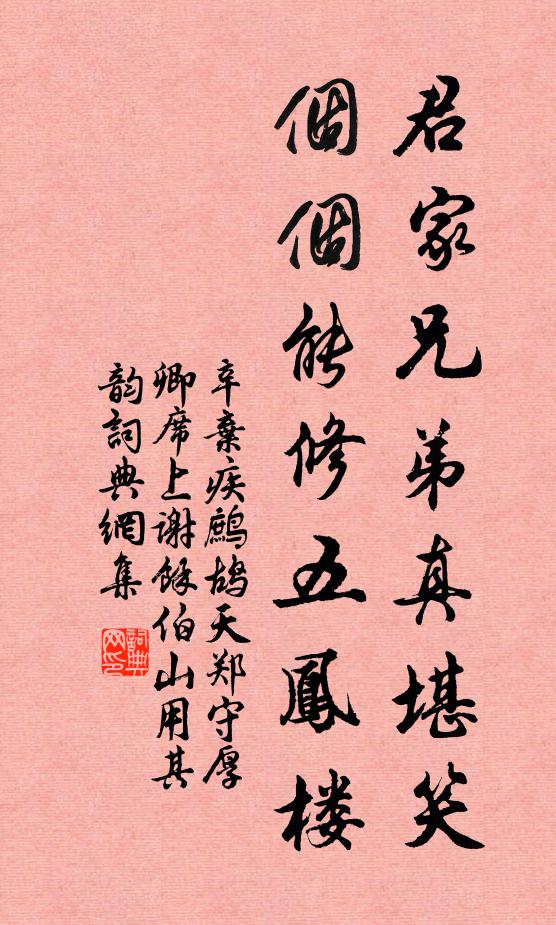 君家兄弟真堪笑
個個能修五鳳楼
辛棄疾鷓鴣天郑守厚
卿席上谢餘伯山用其
韵詞典網集
詞典网印